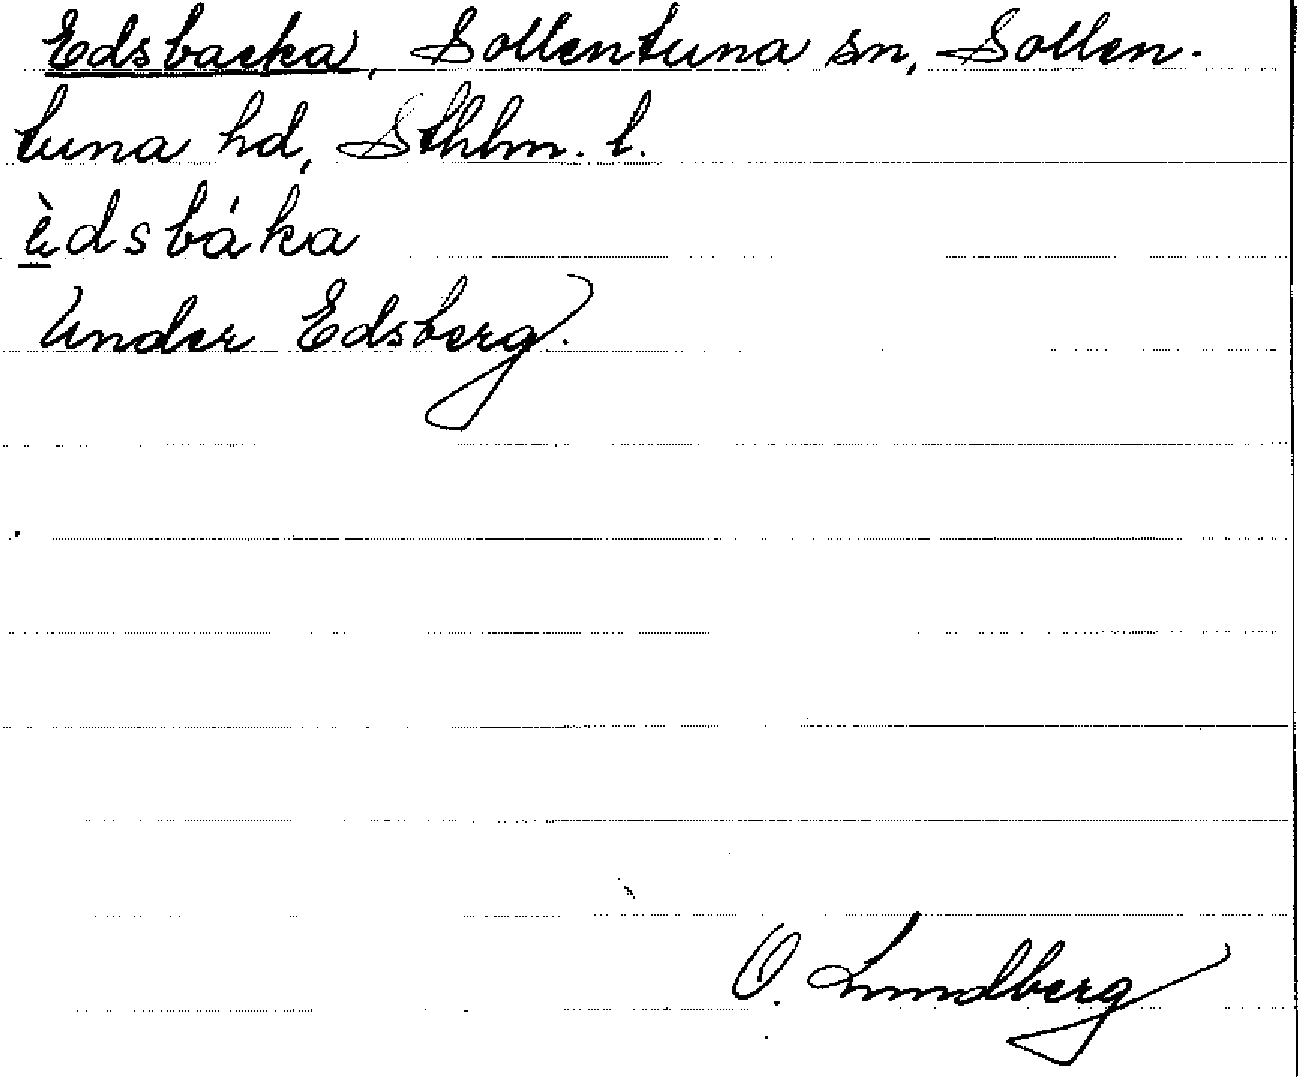 Edsbacka, Sollentuna sn, Sollen-
tuna hd, Sthlm. l.
èdsbáka
Under Edsberg.
O. Lundberg